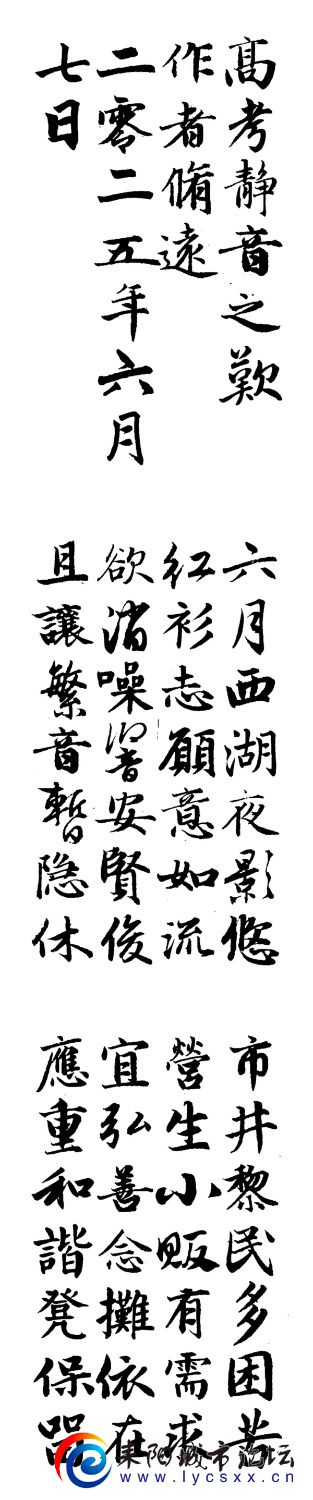 髙考静音之歎
作者脩遠
二零二五年六月
七日
六月西湖夜影悠
红衫志願意如流
欲消噪響安賢俊
且讓繁音暫隐休
市井黎民多困苦
營生小販有需求
宜弘善念攤依在
應重和諧凳保
耒阳城市论坛
www.lycsxx.cn